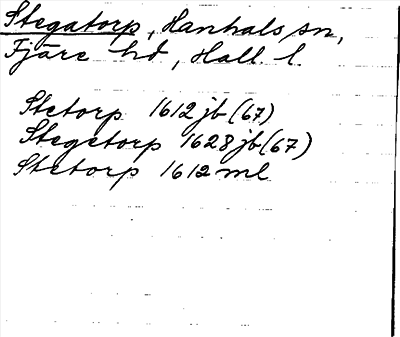 Stegatorp, Hanhals sn,
Fjäre hd, Hall. l.
Stetorp 1612 jb (67)
Stegetorp 1628 jb (67)
Stetorp 1612 ml